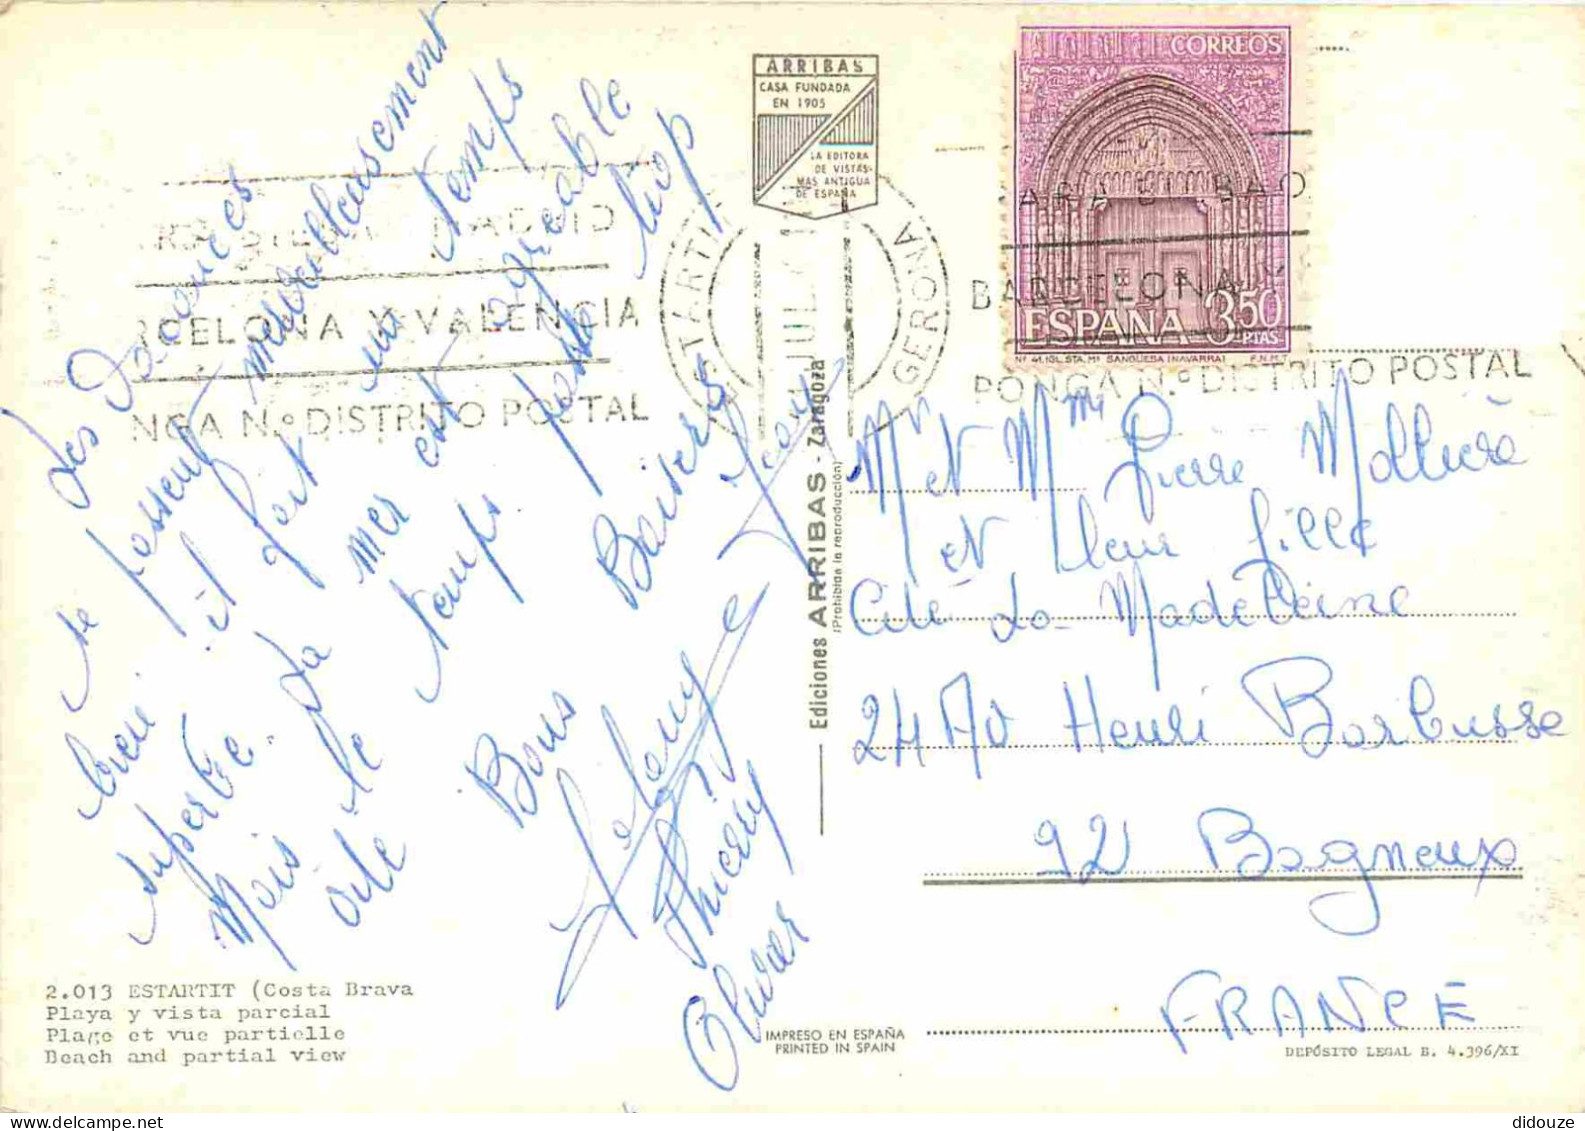 Les Vacances
se passent merveilleusement
bien il fait un temps
superbe. La mer est agréable
Mais le temps passe trop
vite
Bons Baisers
Jeany
Thierry
Olivier
2.013 ESTARTIT (Costa Brava
Playa y vista parcial
Plage et vue partielle
Beach and partial view
ARRIBAS
CASA FUNDADA
EN 1905
LA EDITORA
DE VISTAS
MAS ANTIGUA
DE ESPAÑA
Ediciones ARRIBAS - Zaragoza
(Prohibida la reproducción)
IMPRESO EN ESPAÑA
PRINTED IN SPAIN
MADRID
BARCELONA Y VALENCIA
PONGA N.º DISTRITO POSTAL
ESTARTIT
JUL
GERONA
CORREOS
ESPAÑA 3,50
PTAS
Nº 41, IGL. STA. Mª SANGUESA (NAVARRA) F.N.M.T.
PARA BILBAO
BARCELONA Y
PONGA N.º DISTRITO POSTAL
Mr et Mme Pierre
et leur fille
Cité La Madeleine
24 AV Henri Barbusse
92 Bagneux
FRANCE
DEPÓSITO LEGAL B. 4.396/XI
didouze